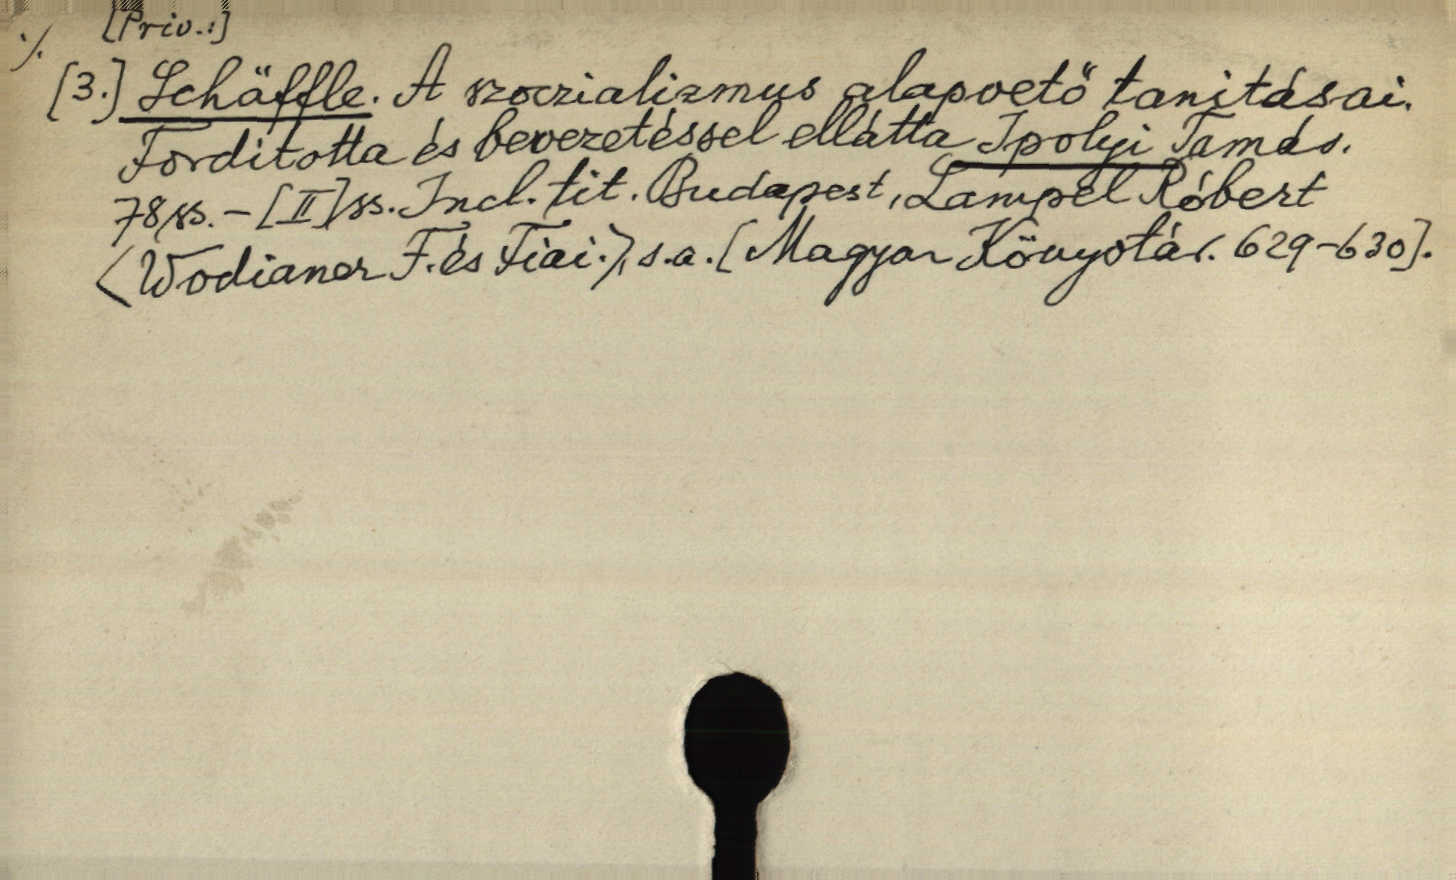 [Priv.:]
·/.
[3.] Schäffle. A szoczializmus alapvető tanításai.
Fordította és bevezetéssel ellátta Ipolyi Tamás.
78 ss. – [II] ss. Incl. tit. Budapest, Lampel Róbert
<Wodianer F. és Fiai.>, s.a. [Magyar Könyvtár. 629–630].